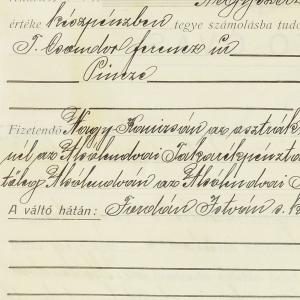 értéke készpénzben tegye számolásba tudo
T. Csándor ferencz úr
Pincze
Fizetendő Nagy-Kanizsán az osztrák
nél az Alsólendvai Takarékpénzta
tóleg Alsólendván az Alsólendvai
A váltó hátán: Ferdián István s. k